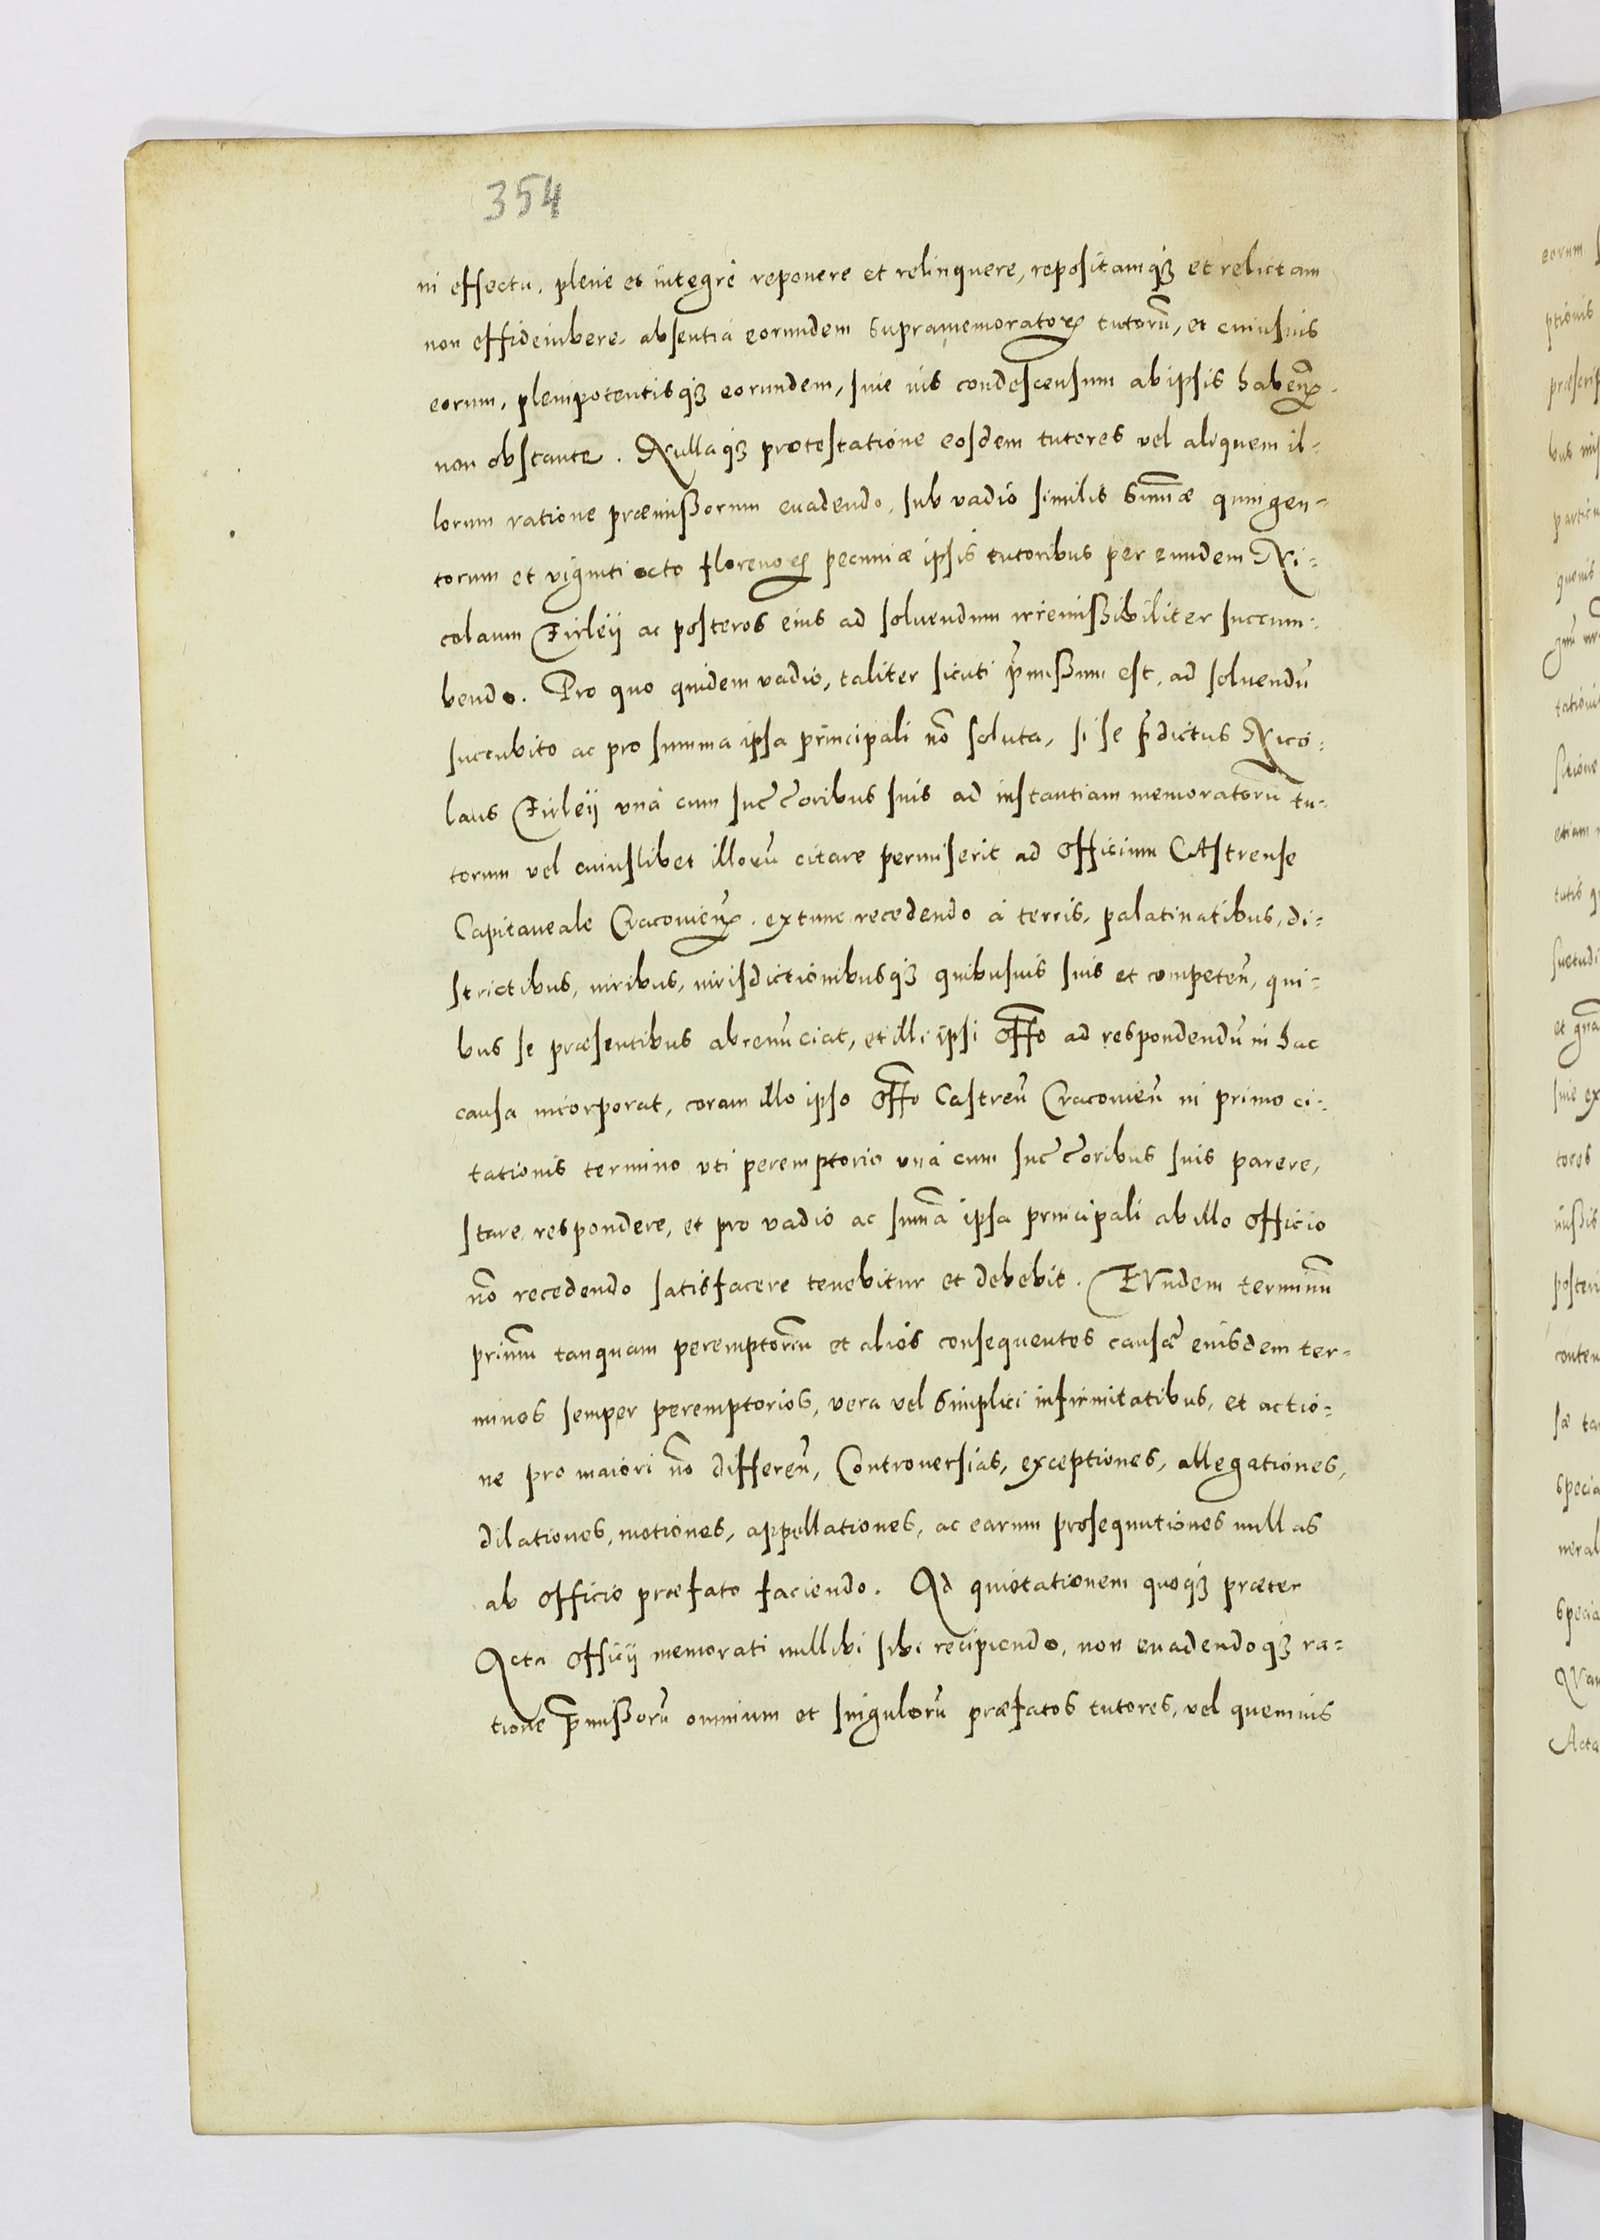 354
in effectu, plene et integrè reponere et relinquere, repositamq₃ et relictam
non effideiubere. absentia eorundem supramemoratoꝝ tutorū, et cuiusuis
eorum, plenipotentisq₃ eorundem, siue ius condescensum ab ipsis haben̄.
non obstante. Nullaq₃ protestatione eosdem tutores vel aliquem il-
lorum ratione præmissorum euadendo, sub vadio similis summæ quingen-
torum et viginti octo florenoꝝ pecuniæ ipsis tutoribus per eundem Ni-
colaum Firleij ac posteros eius ad soluendum irremissibiliter succum-
bendo. Pro quo quidem vadio, taliter sicuti p̄missum est, ad soluendū
succubito ac pro summa ipsa principali nō soluta, si se p̄dictus Nico-
laus Firleij vnà cum succ̄oribus suis ad instantiam memoratorū tu-
torum vel cuiuslibet illorū citare permiserit ad officium CAstrense
Capitaneale Cracouien̄. extunc recedendo à terris, palatinatibus, di-
strictibus, iuribus, iurisdictionibusq₃ quibusuis suis et competen̄, qui-
bus se præsentibus abrenūciat, et illi ipsi off̄o ad respondendū in hac
causa incorporat, coram illo ipso off̄o Castren̄ Cracouien̄ in primo ci-
tationis termino vti peremptorio vnà cum succ̄oribus suis parere,
stare, respondere, et pro vadio ac sum̄a ipsa principali ab illo officio
nō recedendo satisfacere tenebitur et debebit. EVndem terminū
primū tanquam peremptoriū et alios consequentes causæ eiusdem ter-
minos semper peremptorios, vera vel simplici infirmitatibus, et actio-
ne pro maiori nō differen̄, Controuersias, exceptiones, allegationes,
dilationes, motiones, appellationes, ac earum prosequutiones nullas
ab officio præfato faciendo. Ad quietationem quoq₃ præter
Acta officij memorati nullibi sibi recipiendo, non euadendoq₃ ra-
tione p̄missorū omnium et singulorū præfatos tutores, vel quemuis